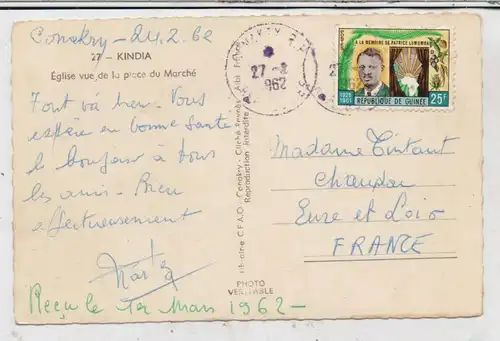 Conakry - 24.2.62
27 - KINDIA
Église vue de la place du Marché
Tout va bien. Vous
espère en bonne santé
le bonjour à tous
les amis - Bien
affectueusement
Reçu le 1er Mars 1962 -
Librairie C.F.A.O. - Conakry - Cliché
Reproduction interdite
PHOTO
VÉRITABLE
CONAKRY R.P.
27 - 2
1962
A LA MEMOIRE DE PATRICE LUMUMBA
POSTES
1925
1961
REPUBLIQUE DE GUINEE
25F
Madame Tintant
Eure et Loir
FRANCE